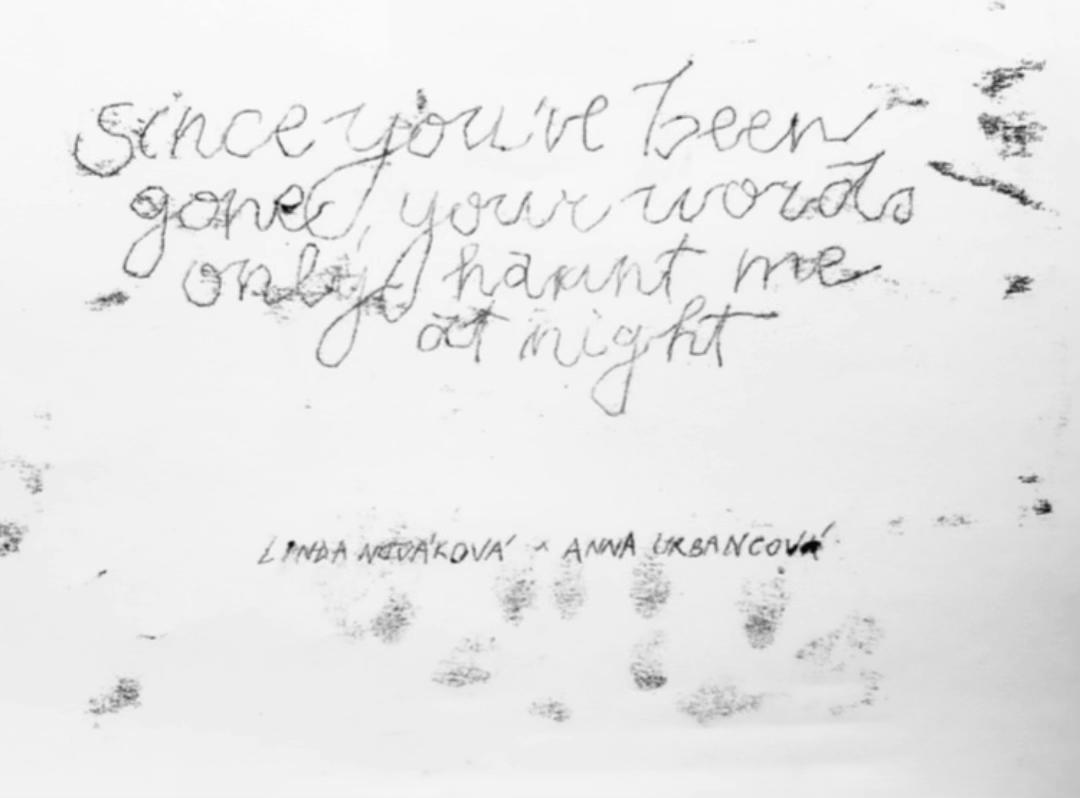 since you've been
gone, your words
only haunt me
at night
LINDA NOVÁKOVÁ × ANNA URBANCOVÁ